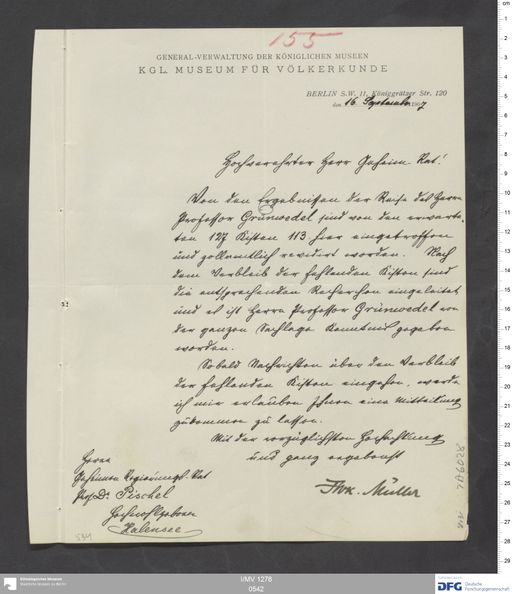 155
GENERAL-VERWALTUNG DER KÖNIGLICHEN MUSEEN
KGL. MUSEUM FÜR VÖLKERKUNDE
BERLIN S.W. 11, Königgrätzer Str. 120
den 16 September 1907
Hochverehrter Herr Geheim Rat!
Von den Ergebnissen der Reise des Herrn
Professor Grünwedel sind von den erwarte-
ten 127 Kisten 113 hier eingetroffen
und zollamtlich revidiert worden. Nach
dem Verbleib der fehlenden Kisten sind
die entsprechenden Recherchen eingeleitet
und es ist Herrn Professor Grünwedel von
der ganzen Sachlage Kenntnis gegeben
worden.
Sobald Nachrichten über den Verbleib
der fehlenden Kisten eingehen, werde
ich mir erlauben Ihnen eine Mitteilung
zukommen zu lassen.
Mit der vorzüglichsten Hochachtung
und ganz ergebenst
Müller
Herrn
Geheimen Regierungs Rat
Prof Dr. Pischel
Hochwohlgeboren
Halensee
I/MV 1278
0542
Ethnologisches Museum
Staatliche Museen zu Berlin
DFG
Deutsche
Forschungsgemeinschaft